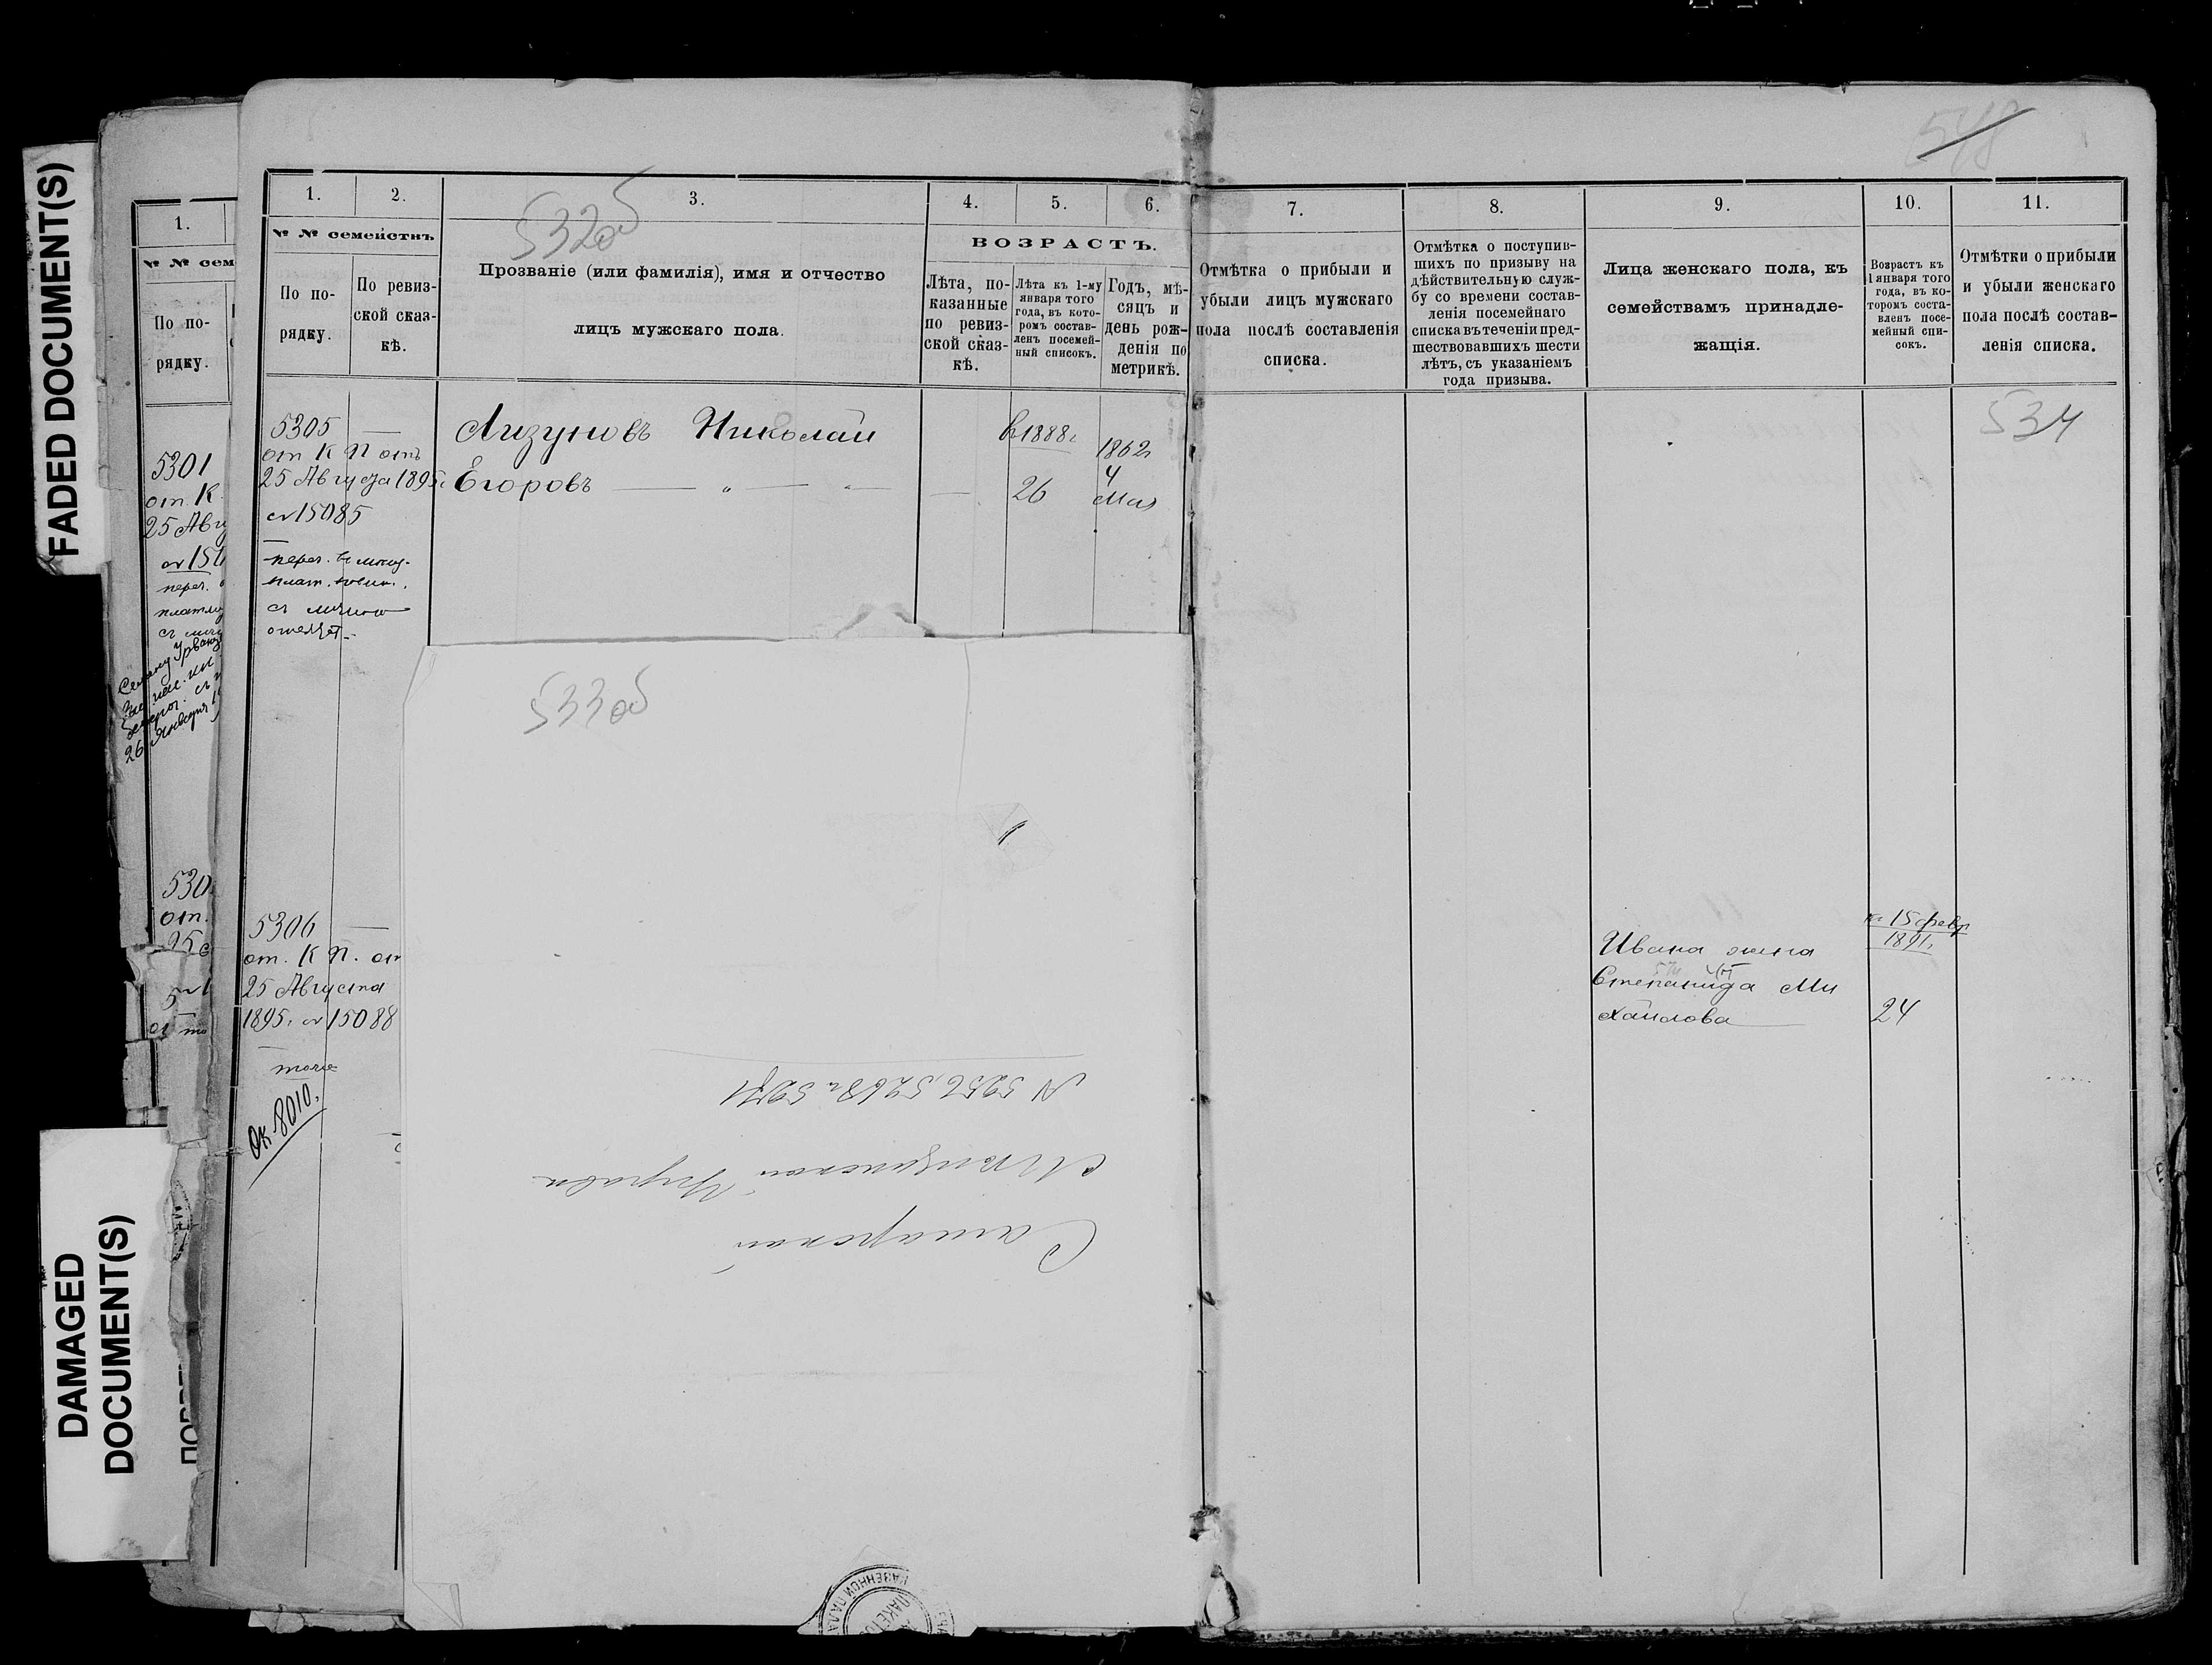 FADED DOCUMENT(S)
DAMAGED
DOCUMENT(S)
1.
№ № сем
По по-
рядку.
5301
от. К.
25 Авгу
перег.
26 Января
530
от.
548
1. 2. 3. 4. 5. 6. 7. 8. 9. 10. 11.
532об
№ № семействъ
По по-
рядку.
По ревиз-
ской сказ-
кѣ.
Прозваніе (или фамилія), имя и отчество
лицъ мужскаго пола.
ВОЗРАСТЪ.
Лѣта, по-
казанные
по ревиз-
ской сказ-
кѣ.
Лѣта къ 1-му
января того
года, въ кото-
ромъ состав-
ленъ посемей-
ный списокъ.
Годъ, мѣ-
сяцъ и
день рож-
денія по
метрикѣ.
Отмѣтка о прибыли и
убыли лицъ мужскаго
пола послѣ составленія
списка.
Отмѣтка о поступив-
шихъ по призыву на
дѣйствительную служ-
бу со времени состав-
ленія посемейнаго
списка въ теченіи пред-
шествовавшихъ шести
лѣтъ, съ указаніемъ
года призыва.
Лица женскаго пола, къ
семействамъ принадле-
жащія.
Возрастъ къ
1 января того
года, въ ко-
торомъ соста-
вленъ посе-
мейный спи-
сокъ.
Отмѣтки о прибыли
и убыли женскаго
пола послѣ состав-
ленія списка.
534
5305 —
от К П отъ
25 Августа 1895г
№ 15085
Лизуновъ Николай
Егоровъ — „ —
— 26
1862г
4
Мая
въ 1888г
533об
5306 —
от. К П. от
25 Августа
1895г № 15088
тоже
Ок 8010.
Ивана жена
Степанида Ми
хайлова
15 февр
1891г
24
№ 5256, 5268 и 5271
Мѣщанской Управы
Самарской
ПАКЕТОВ
КАЗЕННОЙ ПАЛАТЫ